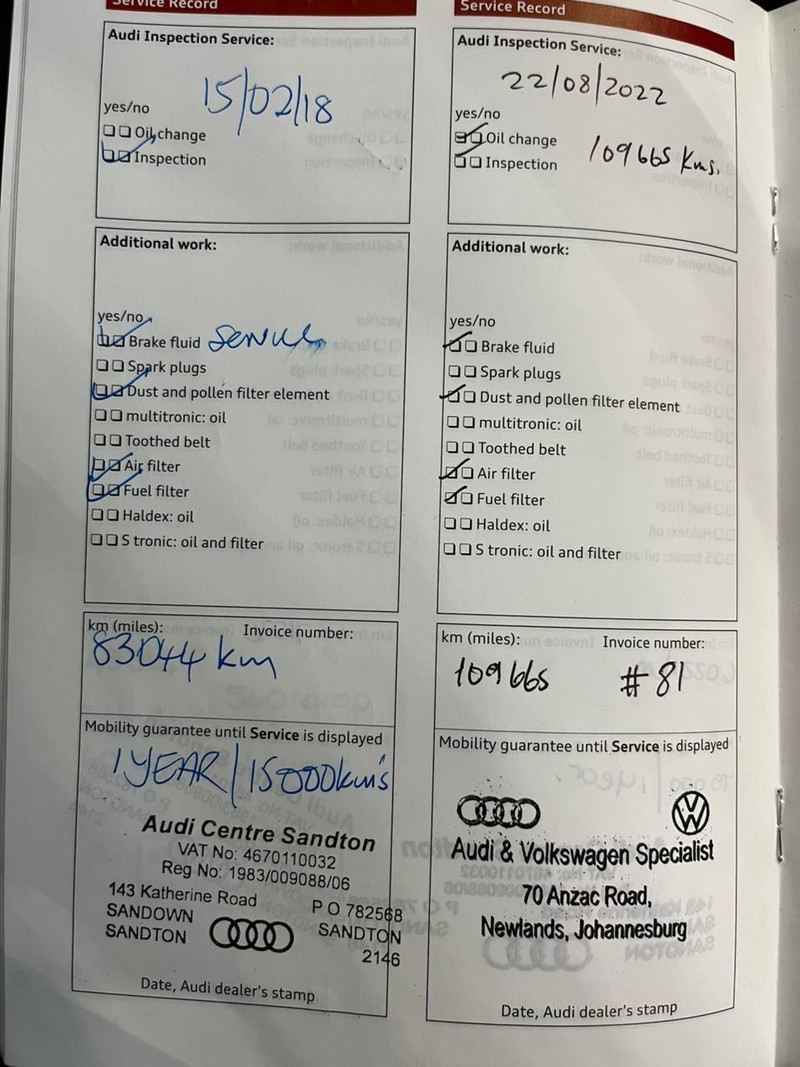 Service Record
Audi Inspection Service:
15/02/18
yes/no
Oil change
Inspection
Additional work:
yes/no
Brake fluid Service
Spark plugs
Dust and pollen filter element
multitronic: oil
Toothed belt
Air filter
Fuel filter
Haldex: oil
S tronic: oil and filter
km (miles): Invoice number:
83044 km
Mobility guarantee until Service is displayed
1 YEAR/15000km's
Audi Centre Sandton
VAT No: 4670110032
Reg No: 1983/009088/06
143 Katherine Road P O 782568
SANDOWN SANDTON
SANDTON 2146
Date, Audi dealer's stamp
Service Record
Audi Inspection Service:
22/08/2022
yes/no
Oil change
Inspection 109665 Kms.
Additional work:
yes/no
Brake fluid
Spark plugs
Dust and pollen filter element
multitronic: oil
Toothed belt
Air filter
Fuel filter
Haldex: oil
S tronic: oil and filter
km (miles): Invoice number:
109665 #81
Mobility guarantee until Service is displayed
Audi & Volkswagen Specialist
70 Anzac Road,
Newlands, Johannesburg
Date, Audi dealer's stamp